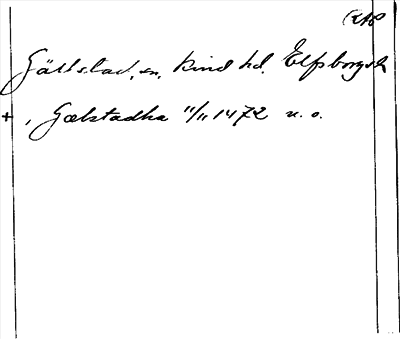 Gällstad, sn, Kind hd. Elfsborgs l.
+ , Gælstadha 11/11 1472 u. o.